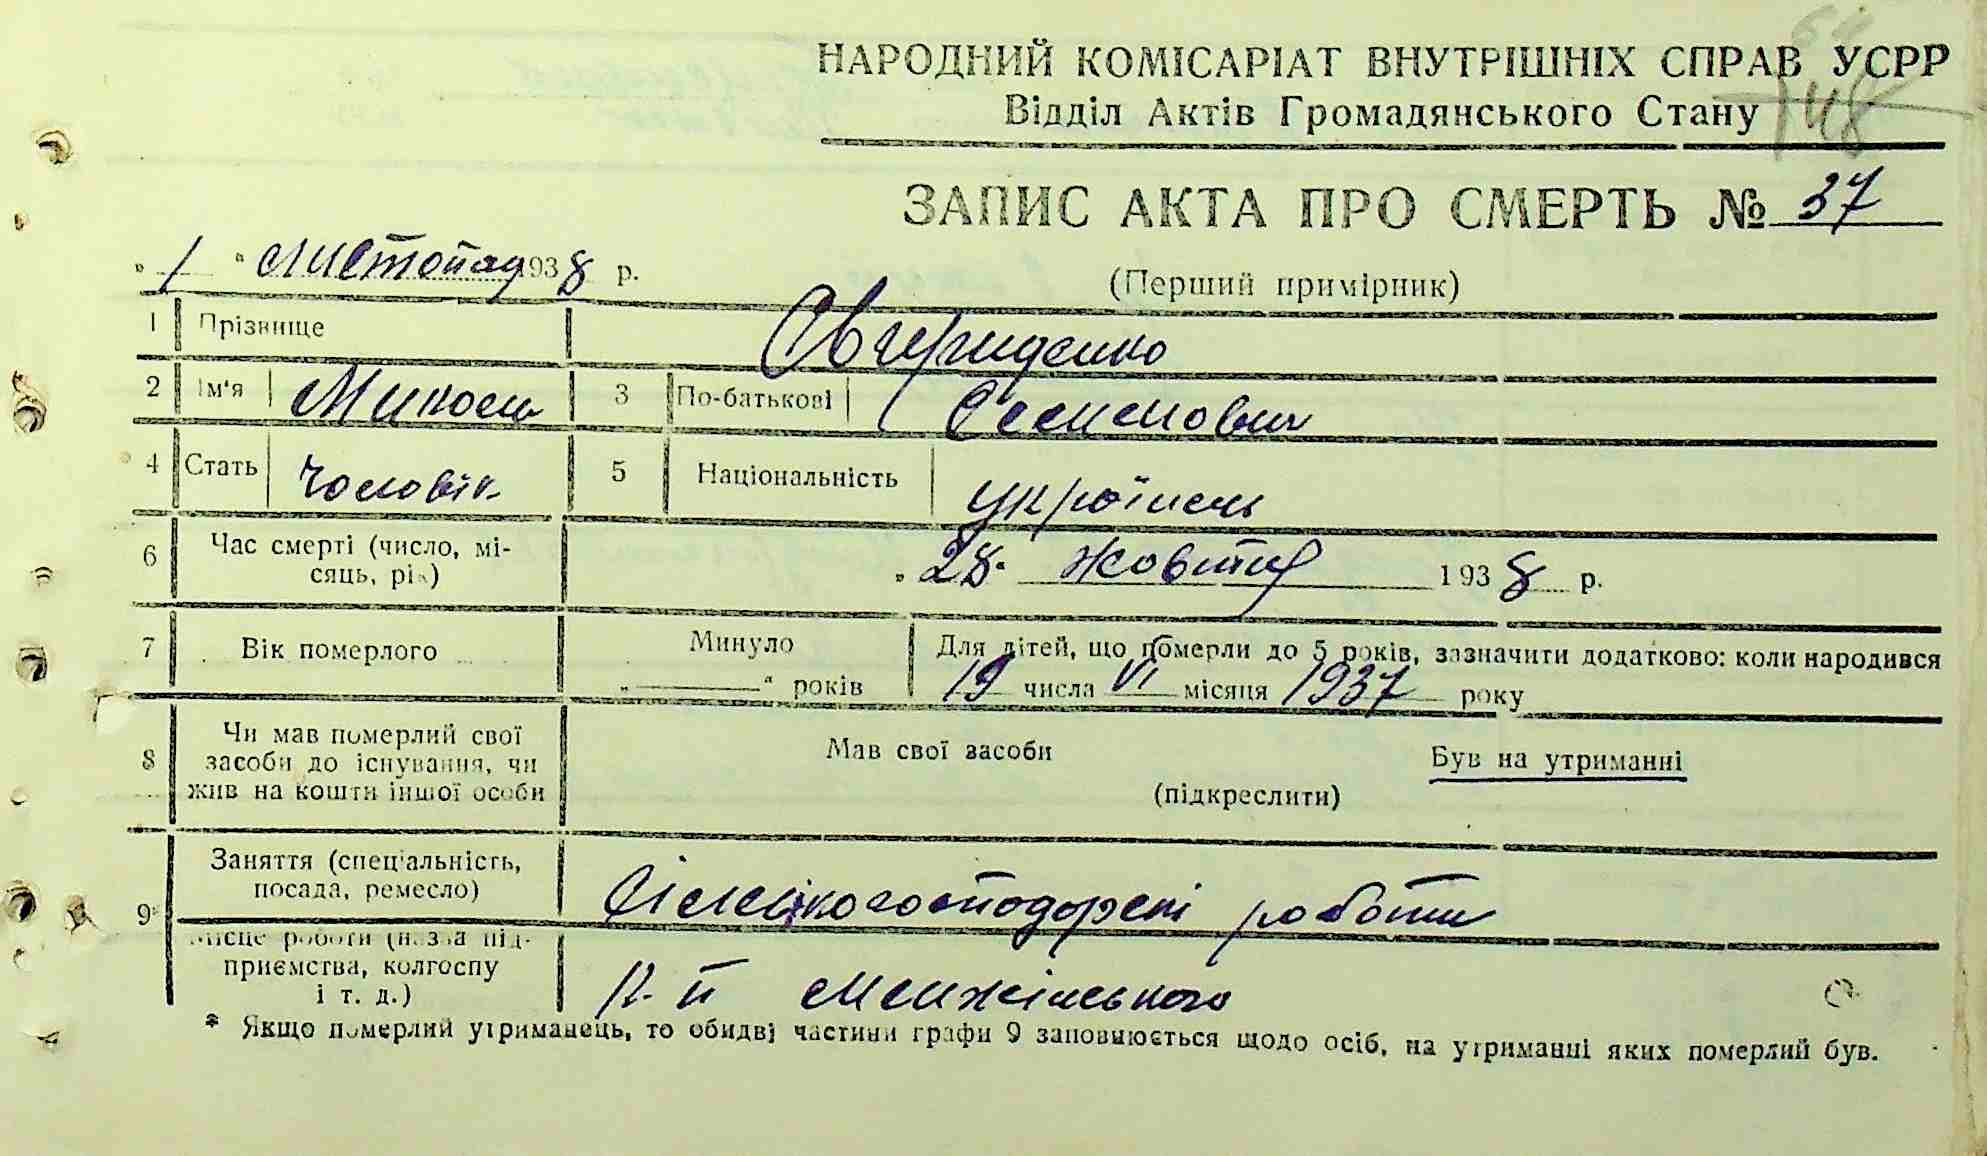 НАРОДНИЙ КОМІСАРІАТ ВНУТРІШНІХ СПРАВ УСРР
Відділ Актів Громадянського Стану
148
ЗАПИС АКТА ПРО СМЕРТЬ № 37
„ 1 " Листопад 1938 р.
(Перший примірник)
1 Прізвище
2 Ім'я Микола 3 По-батькові Семенович
4 Стать Чоловік 5 Національність українець
6 Час смерті (число, мі-
сяць, рік) „ 28 " жовтня 1938 р.
7 Вік померлого Минуло „ — " років Для дітей, що померли до 5 років, зазначити додатково: коли народився
19 числа VI місяця 1937 року
8 Чи мав померлий свої
засоби до існування, чи
жив на кошти іншої особи
Мав свої засоби Був на утриманні
(підкреслити)
9* Заняття (спеціальність,
посада, ремесло) Сільськогосподарскі роботи
Місце роботи (назва під-
приємства, колгоспу
і т. д.)
* Якщо померлий утриманець, то обидві частини графи 9 заповнюється щодо осіб, на утриманні яких померлий був.